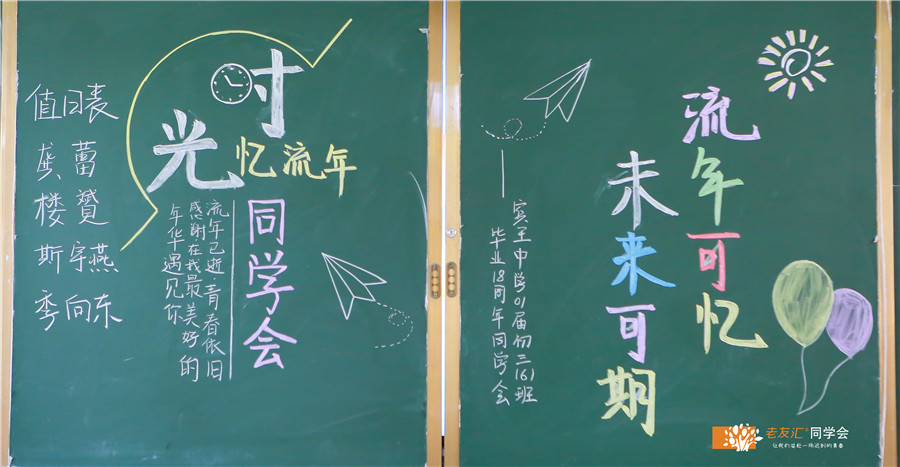 值日表
龚蕾
楼赟
斯宇燕
季向东
时光
忆流年
同学会
流年已逝·青春依旧
感谢在我最美好的
年华遇见你
宾王中学01届初三(6)班
毕业18周年同学会
流年可忆
未来可期
老友汇®同学会